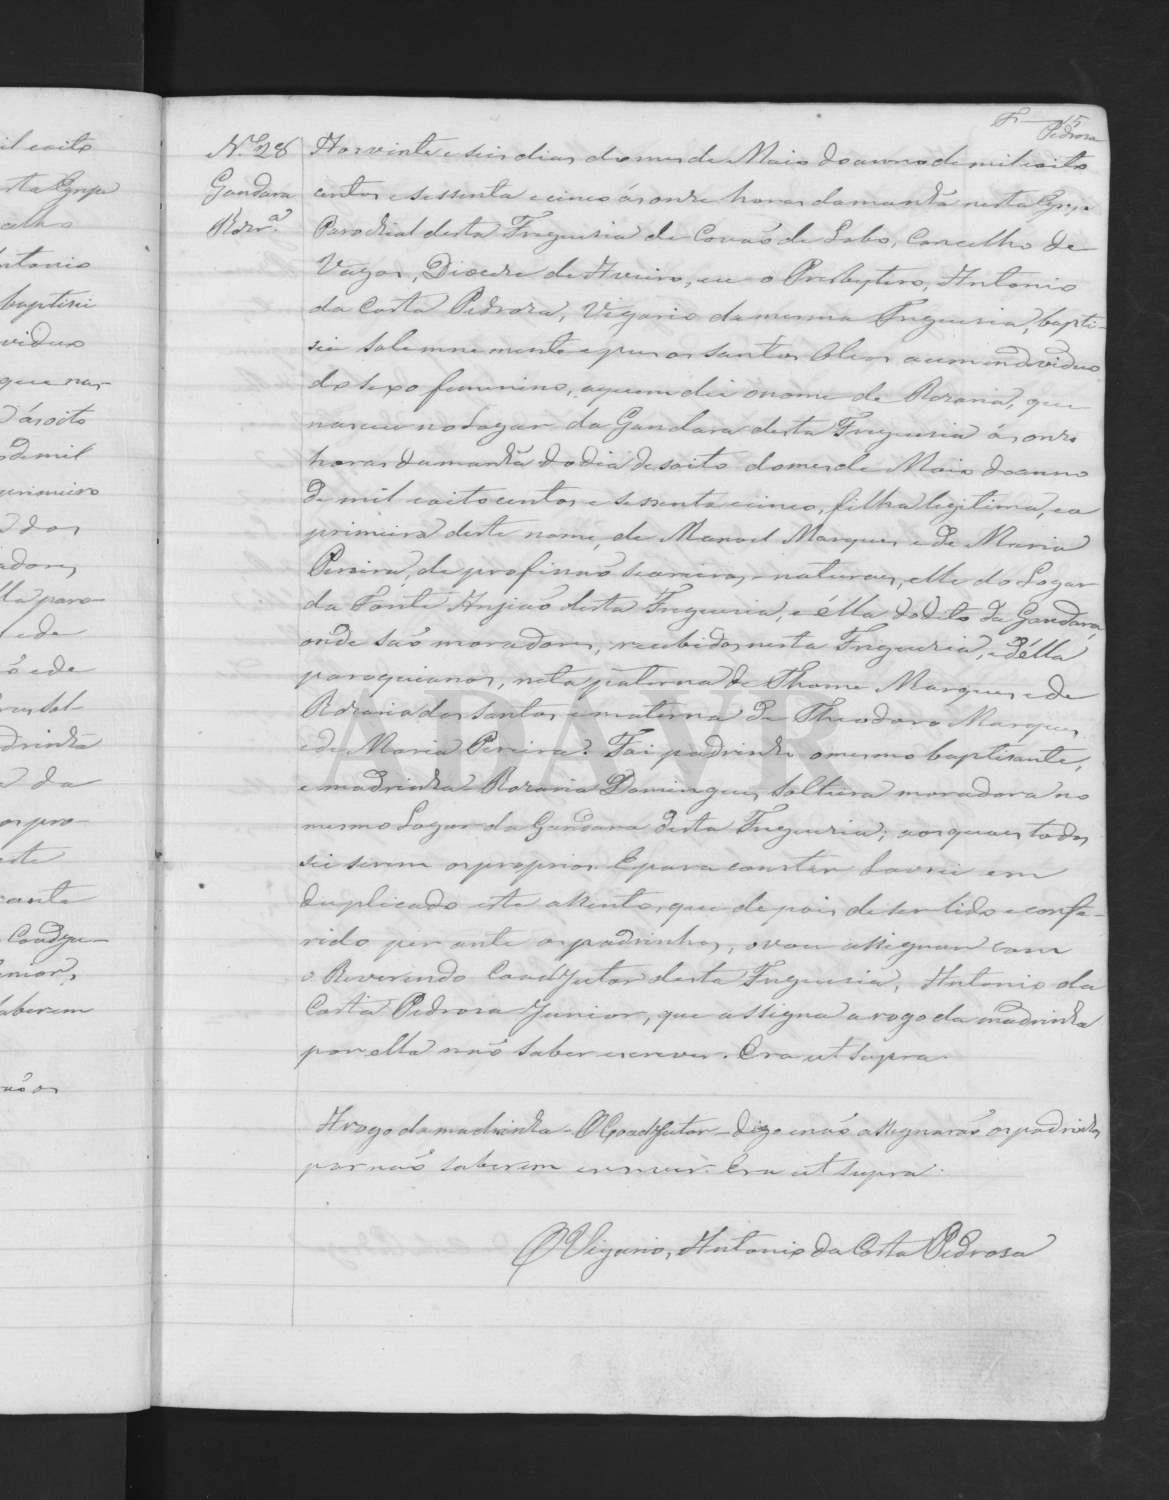 F 15
Pedrosa
il coito
sta Egrja
elho
ntonio
baptisei
viduo
que nas-
ás oito
de mil
primeiro
dos
adores
lla paro-
ede
ó ede
drinha
da
os pro-
este
cante
Coadju-
unior,
saberem
não os
N.º 28
Gandara
Rozr.ª
Aos vinte e seis dias do mes de Maio do anno de mil e oito
centos e sessenta e cinco ás onze horas da manhã nesta Egrja
Parochial desta Freguesia de Covaõ do Lobo, Concelho de
Vagos, Diocese de Aveiro, eu o Presbytero, Antonio
da Costa Pedroza, Vigario da mesma Freguesia, bapti-
sei solemnemente e pus os santos Oleos a um individuo
do sexo feminino, a quem dei o nome de Rozaria, que
nasceu no Logar da Gandara desta Freguesia ás onze
horas da manhã do dia desoito do mes de Maio do anno
de mil e oitocentos e sessenta e cinco, filha legitima, e a
primeira deste nome, de Manoel Marques e de Maria
Pereira, de profissaõ seareiros, naturaes, elle do Logar
da Fonte Anjiaõ desta Freguesia, e élla do dito da Gandara,
onde saõ moradores, recebidos nesta Freguesia, e d'élla
paroquianos, neta paterna de Thome Marques e de
Rozaria dos Santos e materna de Theodoro Marques
e de Maria Pereira. Foi padrinho o mesmo baptisante,
e madrinha Rozaria Domingues, solteira moradora no
mesmo Logar da Gandara desta Freguesia; aos quaes todos
sei serem os proprios. E para constar lavrei em
duplicado este assento, que depois de ser lido e confe-
rido per ante os padrinhos, o vou assignar com
o Reverendo Coadjutor desta Freguesia, Antonio da
Costa Pedrosa Junior, que assigna a rogo da madrinha
por ella naõ saber escrever. Era ut supra.
A rogo da madrinha - O Coadjutor - digo e naõ assignaraõ os padrinhos
por naõ saberem escrever. Era ut supra.
O Vigario, Antonio da Costa Pedrosa
ADAVR